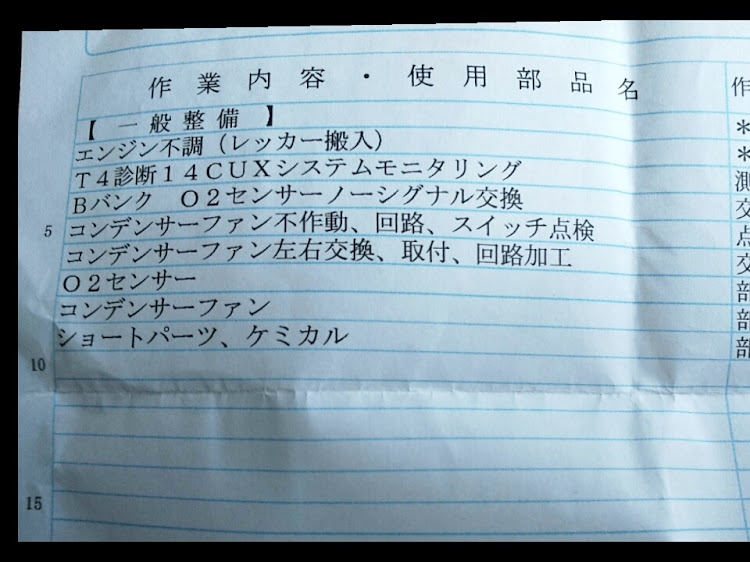 作業内容・使用部品名 作
【 一般整備 】 *
エンジン不調（レッカー搬入） *
Ｔ４診断１４ＣＵＸシステムモニタリング 測
Ｂバンク Ｏ２センサーノーシグナル交換 交
5 コンデンサーファン不作動、回路、スイッチ点検 点
コンデンサーファン左右交換、取付、回路加工 交
Ｏ２センサー 部
コンデンサーファン 部
ショートパーツ、ケミカル 部
10
15